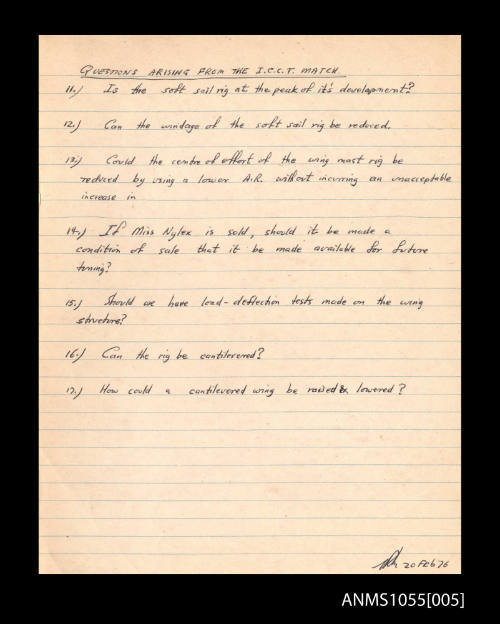 QUESTIONS ARISING FROM THE I.C.C.T. MATCH.
11.) Is the soft sail rig at the peak of it's development?
12.) Can the windage of the soft sail rig be reduced.
13.) Could the centre of effort of the wing mast rig be
reduced by using a lower A.R. without incurring an unacceptable
increase in
14.) If Miss Nylex is sold, should it be made a
condition of sale that it be made available for future
tuning?
15.) Should we have load-deflection tests made on the wing
structure?
16.) Can the rig be cantilevered?
17.) How could a cantilevered wing be raised & lowered?
20 FEB 76
ANMS1055[005]